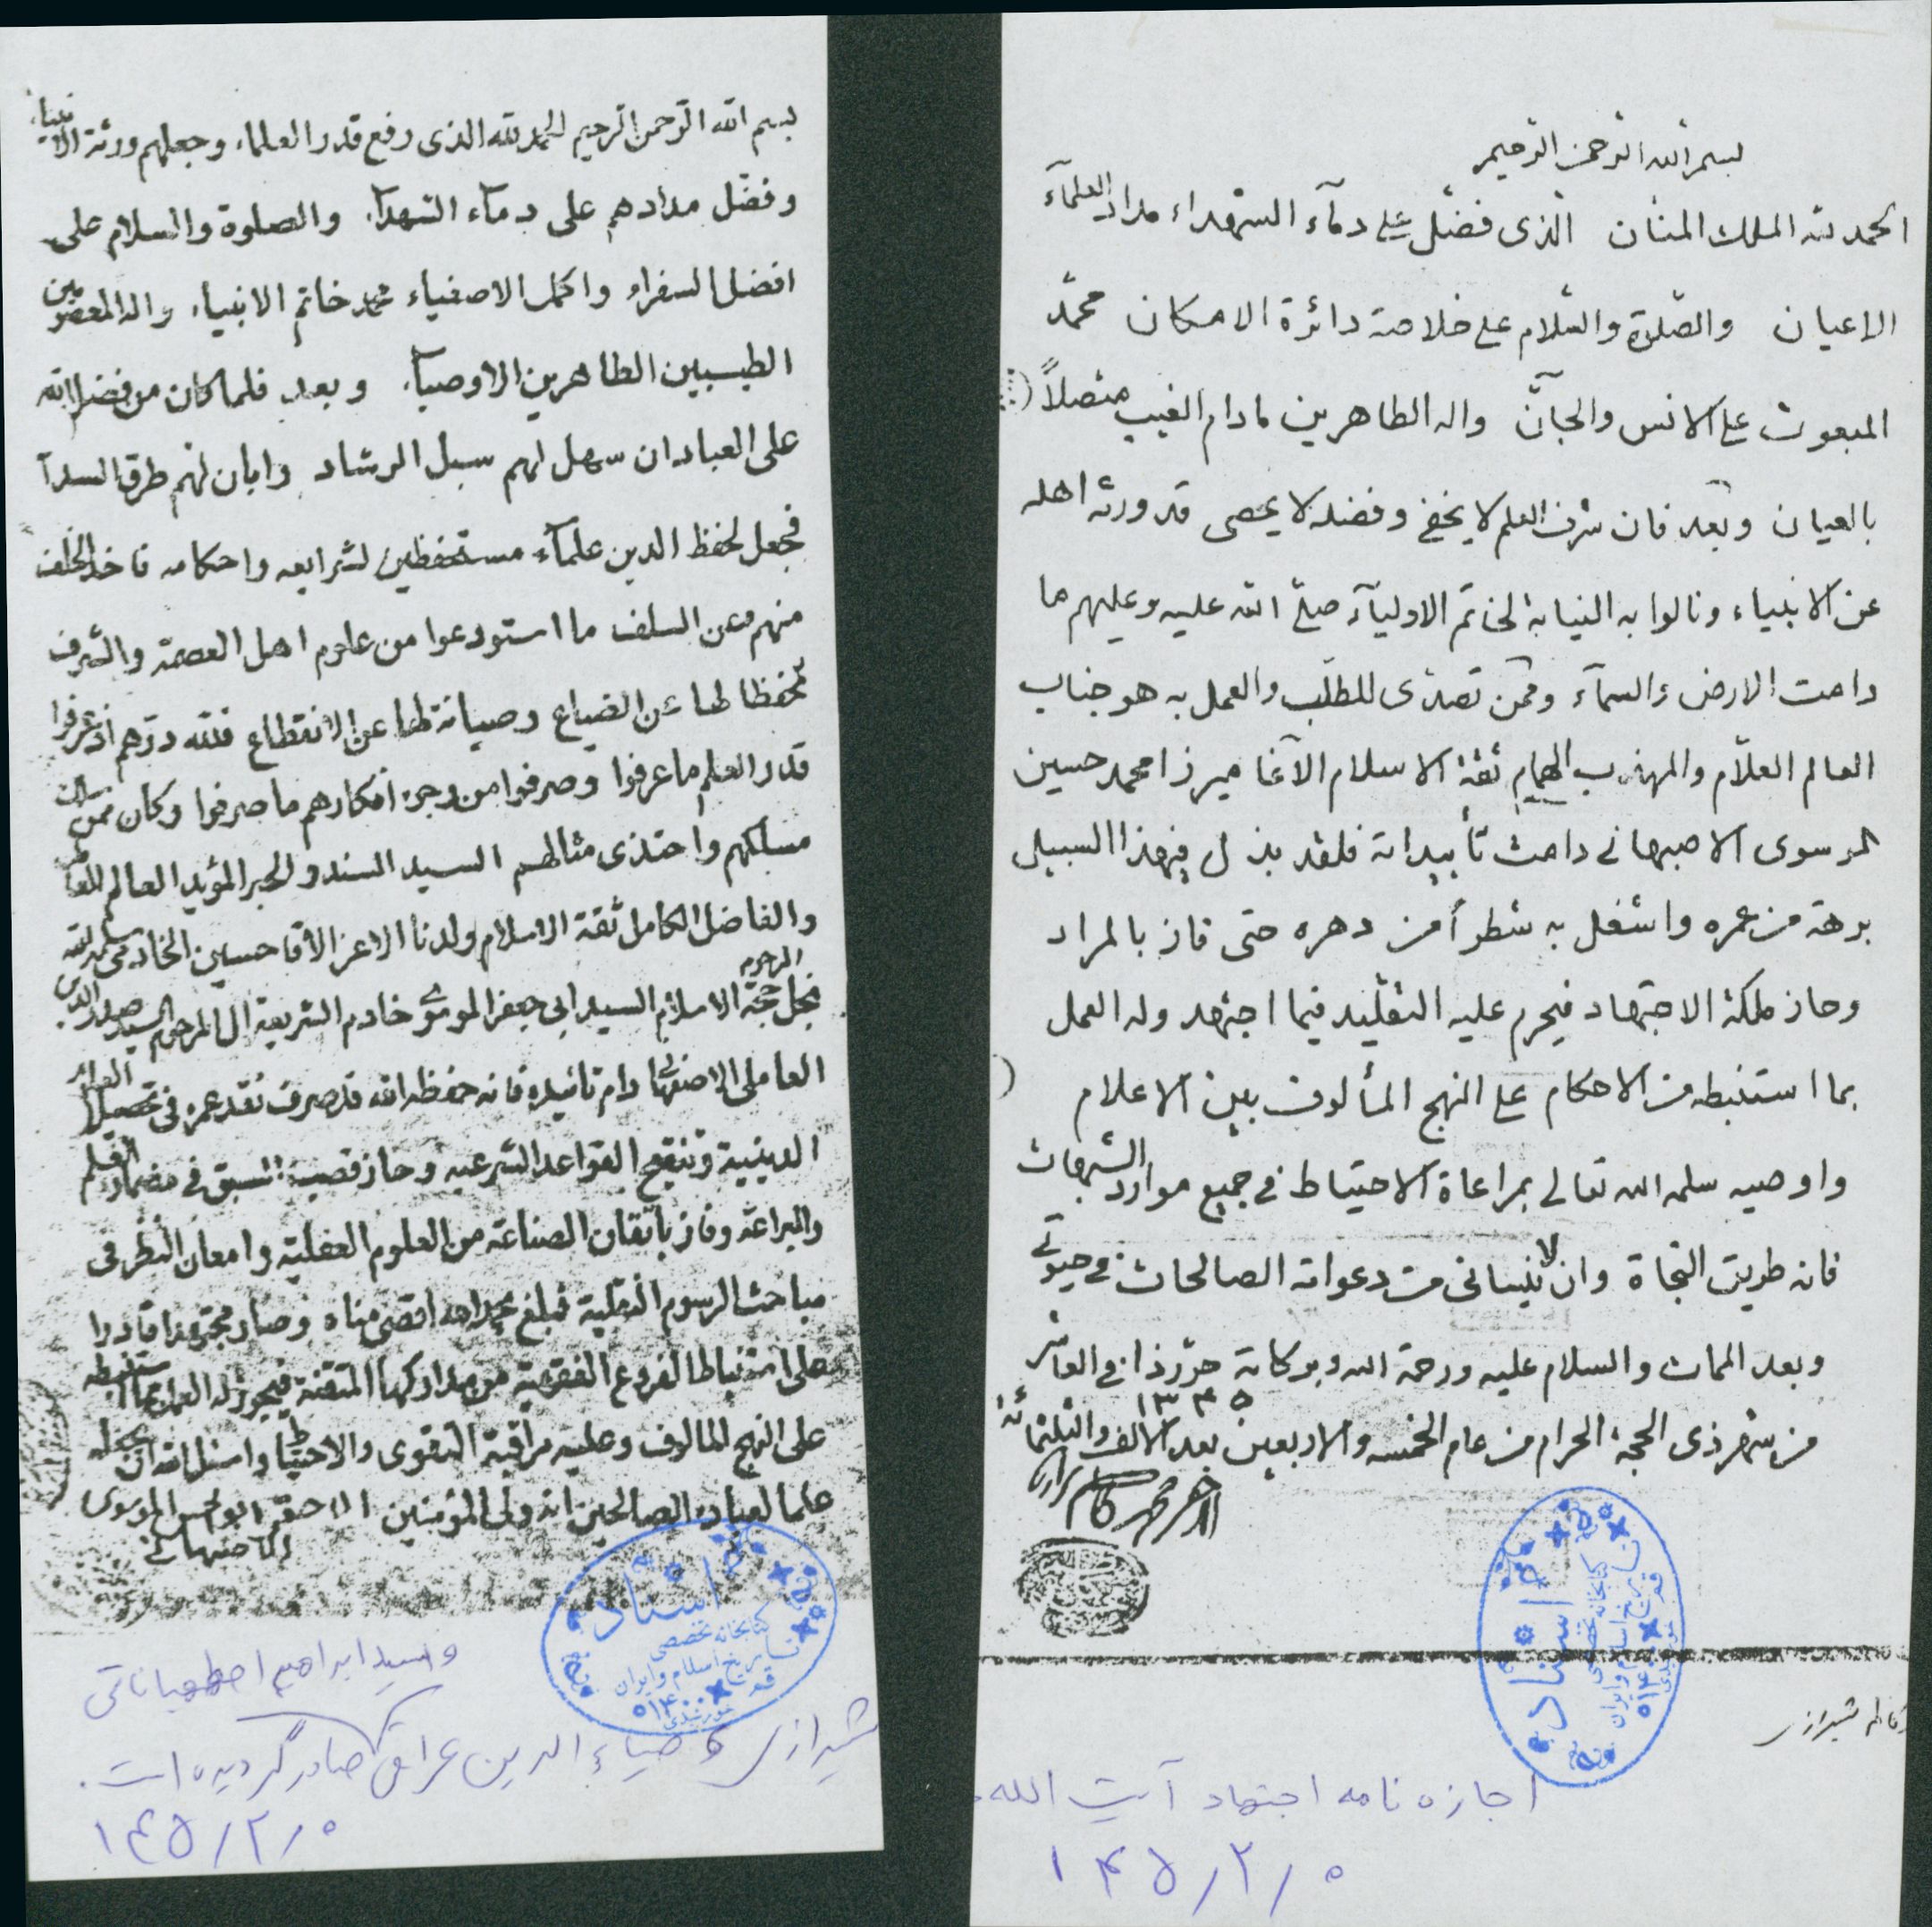 بسم الله الرحمن الرحيم
الحمد لله الملك المنان الذى فضّل على دمآء الشهداء مداد العلمآء
الاعيان والصّلوة والسّلام على خلاصة دائرة الامكان محمّد
المبعوث على الانس والجآنّ واله الطاهرين مادام الغيب متصلاً
بالعيان وبعد فان شرف العلم لا يخفى وفضله لا يحصى قد ورثه اهله
عن الانبياء ونالوا به النيابة لخاتم الاوليآء صلى الله عليه وعليهم ما
دامت الارض والسمآء وممّن تصدّى للطلب والعمل به هو جناب
العالم العلّام والمهذب الهمام ثقة الاسلام الآغا ميرزا محمد حسين
الموسوى الاصبهانى دامت تأييداته فلقد بذل فى هذا السبيل
برهة من عمره واشغل به شطراً من دهره حتى فاز بالمراد
وحاز ملكة الاجتهاد فيحرم عليه التقليد فيما اجتهد وله العمل
بما استنبطه من الاحكام على النهج المألوف بين الاعلام
واوصيه سلمه الله تعالى بمراعاة الاحتياط فى جميع موارد الشبهات
فانه طريق النجاة وان لا ينسانى من دعواته الصالحات فى حيوتى
وبعد الممات والسلام عليه ورحمة الله وبركاته حرّر ذا فى العاشر
من شهر ذى الحجة الحرام من عام الخمسه والاربعين بعد الالف والثلثمائة
١٣٤٥
الاحقر محمد كاظم شيرازى
كاظم شيرازى
اجازه نامه اجتهاد آيت الله
١٤٥/٢/٥
اسناد
كتابخانه تخصصى
تاريخ اسلام و ايران
قم
بسم الله الرّحمن الرّحيم الحمد لله الذى رفع قدر العلماء وجعلهم ورثة الانبياء
وفضّل مدادهم على دمآء الشهدآء والصلوة والسلام على
افضل السفراء واكمل الاصفياء محمد خاتم الانبياء واله المعصومين
الطيبين الطاهرين الاوصيآء وبعد فلما كان من فضل الله
على العباد ان سهل لهم سبل الرشاد وابان لهم طرق السدآد
فجعل لحفظ الدين علمآء مستحفظين لشرايعه واحكامه فاخذ الخلف
منهم عن السلف ما استودعوا من علوم اهل العصمة والشرف
تحفظا لها عن الضياع وصيانة لها عن الانقطاع فلله درّهم اذ عرفوا
قدر العلم ما عرفوا وصرفوا من وجوه افكارهم ما صرفوا وكان ممن سلك
مسلكهم واحتذى مثالهم السيد السند والحبر المؤيد العالم العامل
والفاضل الكامل ثقة الاسلام ولدنا الاعز الاقا حسين الخادمى سلمه الله
نجل المرحوم حجة الاسلام السيد ابى جعفر الموسوى خادم الشريعة ال المرحوم السيد صدر الدين
العاملى الاصفهانى دام تائيده فانه حفظه الله قد صرف نقد عمره فى تحصيل العلوم
الدينية وتنقيح القواعد الشرعيه وحاز قصبة السبق فى مضمار العلم
والبراعة وفاز باتقان الصناعة من العلوم العقلية وامعان النظر فى
مباحث الرسوم النقلية فبلغ بحمد الله اقصى مناه وصار مجتهدا قادرا
على استنباط الفروع الفقهية من مداركها المتقنة فيجوز له العمل بما استنبطه
على النهج المالوف وعليه مراقبة التقوى والاحتياط واسئل الله ان يجعله
علما لعباده الصالحين انه ولى المؤمنين الاحقر ابو الحسن الموسوى
الاصفهانى
اسناد
كتابخانه تخصصى
تاريخ اسلام و ايران
قم
و سيد ابراهيم اصطهباناتى
شيرازى و ضياء الدين عراقى صادر گرديده است.
١٤٥/٢/٥